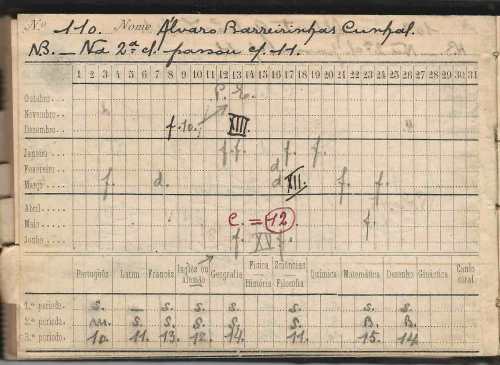 Nº 110. Nome Alvaro Barreirinhas Cunhal.
NB. – Na 2ª cl. passou c/ 11.
1 2 3 4 5 6 7 8 9 10 11 12 13 14 15 16 17 18 19 20 21 22 23 24 25 26 27 28 29 30 31
Outubro
Novembro
Dezembro f. 10. XIII
Janeiro f. f. f. f.
Fevereiro d
Março f. d. d XII. f. f.
Abril
Maio C. = 12 f.
Junho f. XV f.
Português Latim Francês Inglês ou Alemão Geografia Física História Sciências Filosofia Química Matemática Desenho Ginástica Canto coral
1.º período S. – S. S. S. S. S. S.
2.º período m. S. S. S. S. S. B. B.
3.º período 10 11. 13. 12. 14. 11. 15. 14